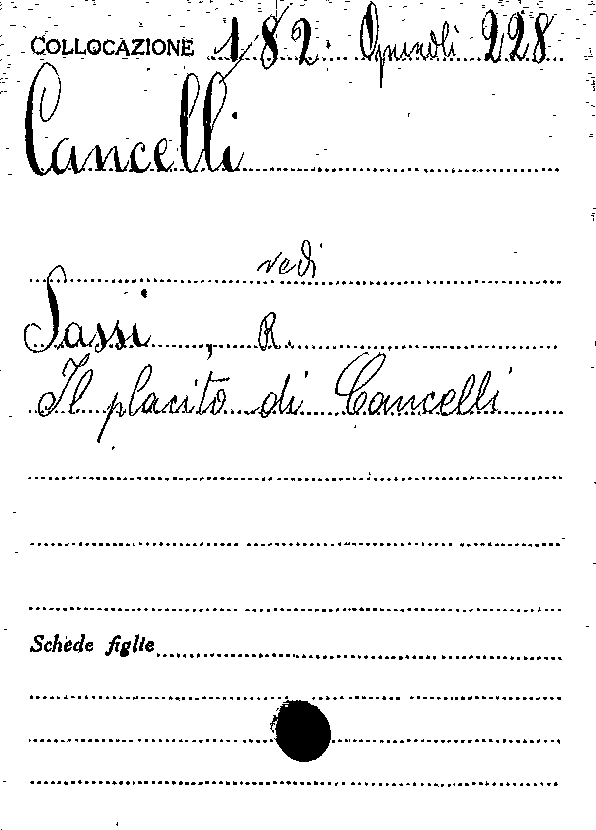 COLLOCAZIONE 182. Opuscoli 228
Cancelli
vedi
Sassi, R.
Il placito di Cancelli
Schede figlie